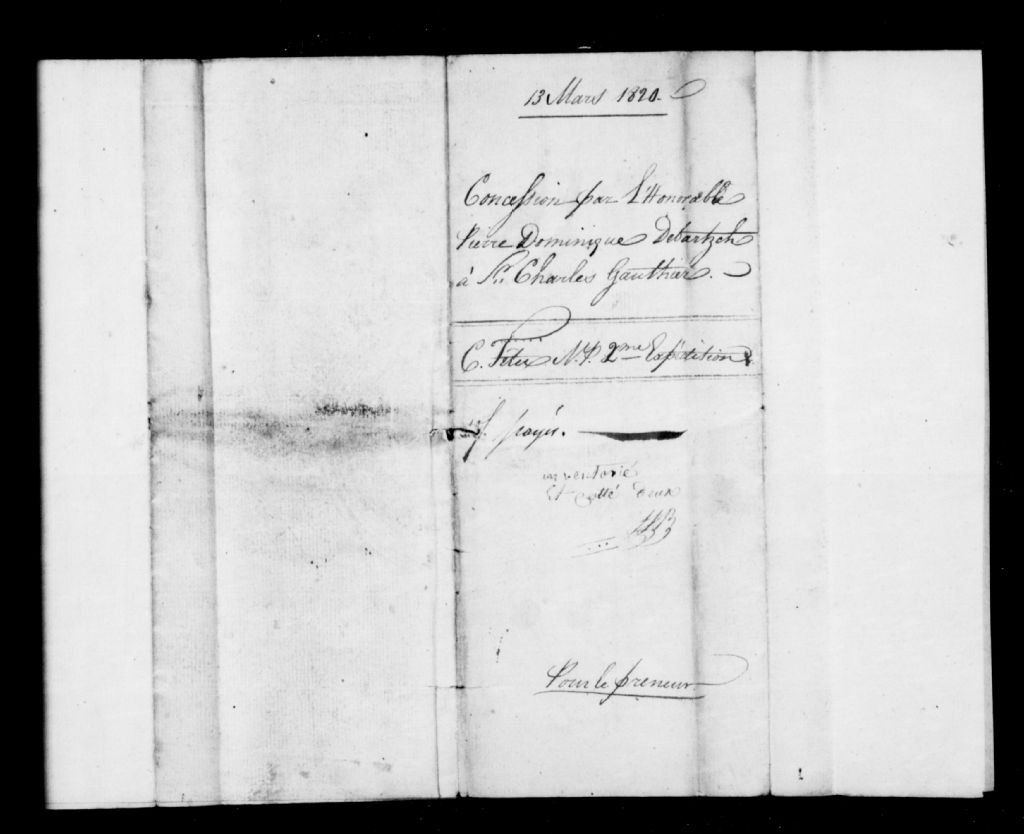 13 Mars 1820.
Concession par l'Honorable
Pierre Dominique Debartzch
à Sr. Charles Gauthier.
C. Têtu N.P. 2me Expédition
payés.
inventorié
et cotté deux
Pour le preneur